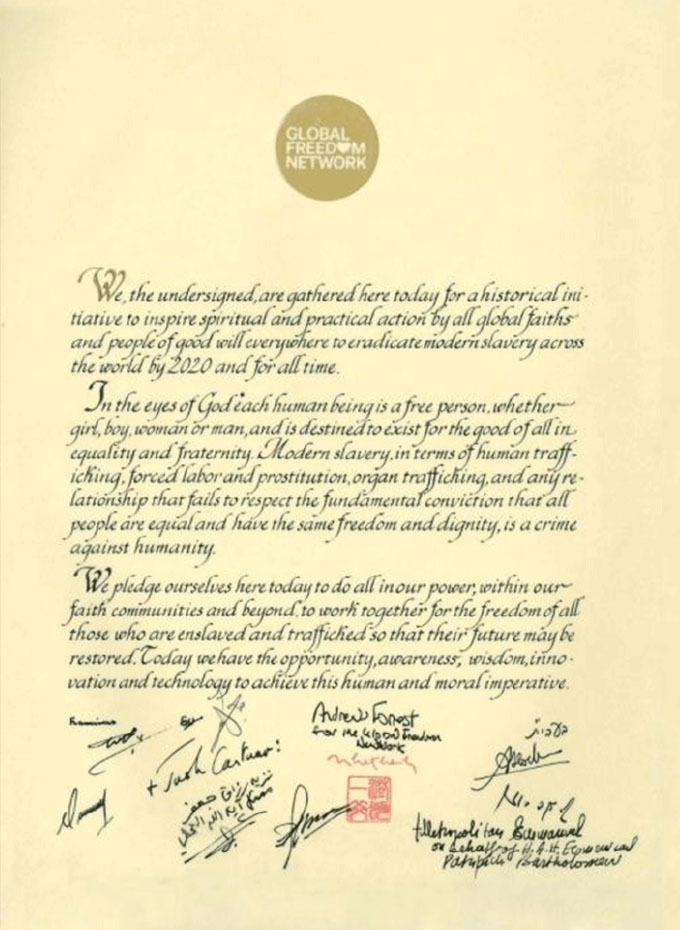 GLOBAL
FREEDOM
NETWORK
We, the undersigned, are gathered here today for a historical ini-
tiative to inspire spiritual and practical action by all global faiths
and people of good will everywhere to eradicate modern slavery across
the world by 2020 and for all time.
In the eyes of God each human being is a free person, whether
girl, boy, woman or man, and is destined to exist for the good of all in
equality and fraternity. Modern slavery, in terms of human traff-
icking, forced labor and prostitution, organ trafficking, and any re-
lationship that fails to respect the fundamental conviction that all
people are equal and have the same freedom and dignity, is a crime
against humanity.
We pledge ourselves here today to do all in our power, within our
faith communities and beyond, to work together for the freedom of all
those who are enslaved and trafficked so that their future may be
restored. Today we have the opportunity, awareness, wisdom, inno-
vation and technology to achieve this human and moral imperative.
Franciscus
Andrew Forrest
for the Global Freedom
Network
Metropolitan Emmanuel
on behalf of H.A.H. Ecumenical
Patriarch Bartholomew